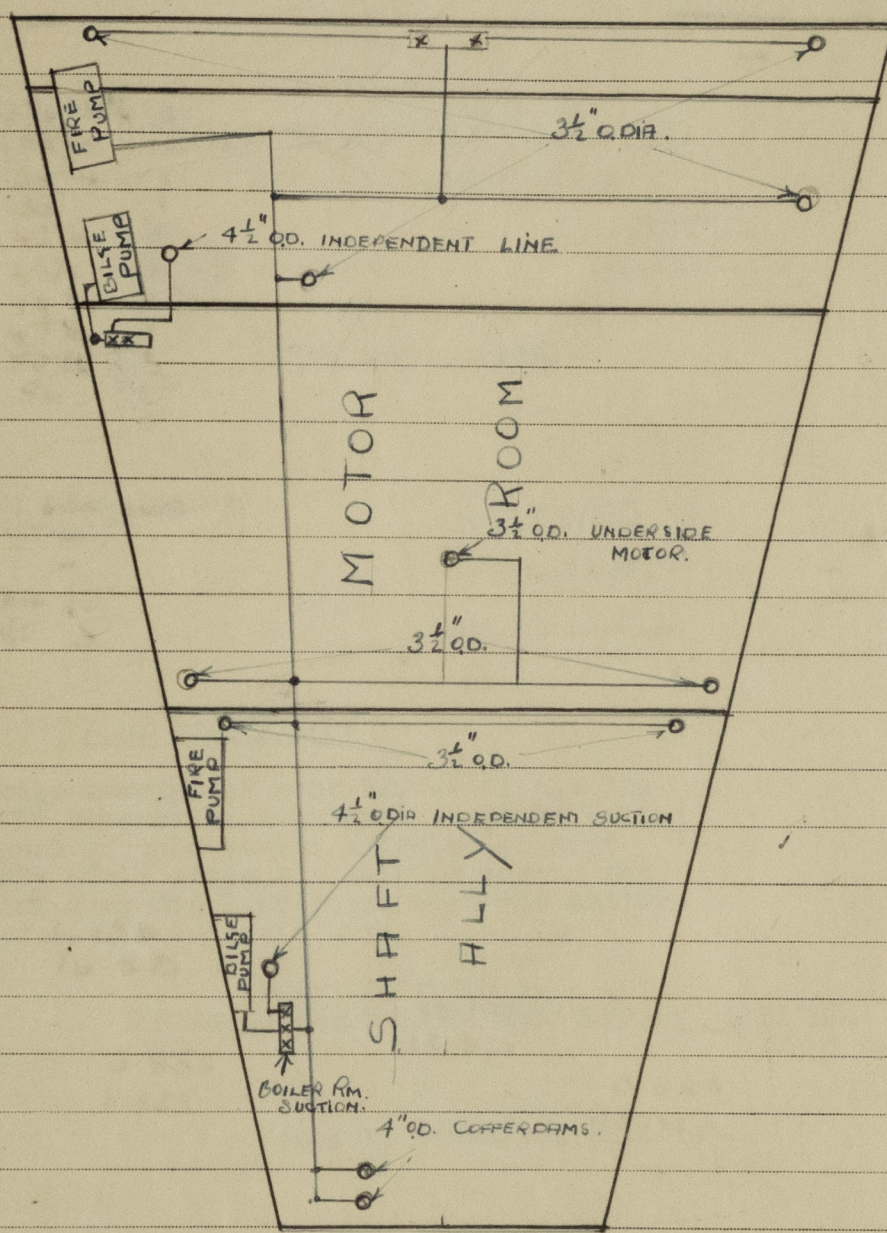 x x
FIRE
PUMP
3½" O.DIA.
BILGE
PUMP
4½" O.D. INDEPENDENT LINE
XX
MOTOR
ROOM
3½" O.D. UNDERSIDE
MOTOR.
3½" O.D.
3½" O.D.
FIRE
PUMP
4½" O.DIA INDEPENDENT SUCTION
SHAFT
ALLY
BILGE
PUMP
XXX
BOILER RM.
SUCTION.
4" O.D. COFFERDAMS.